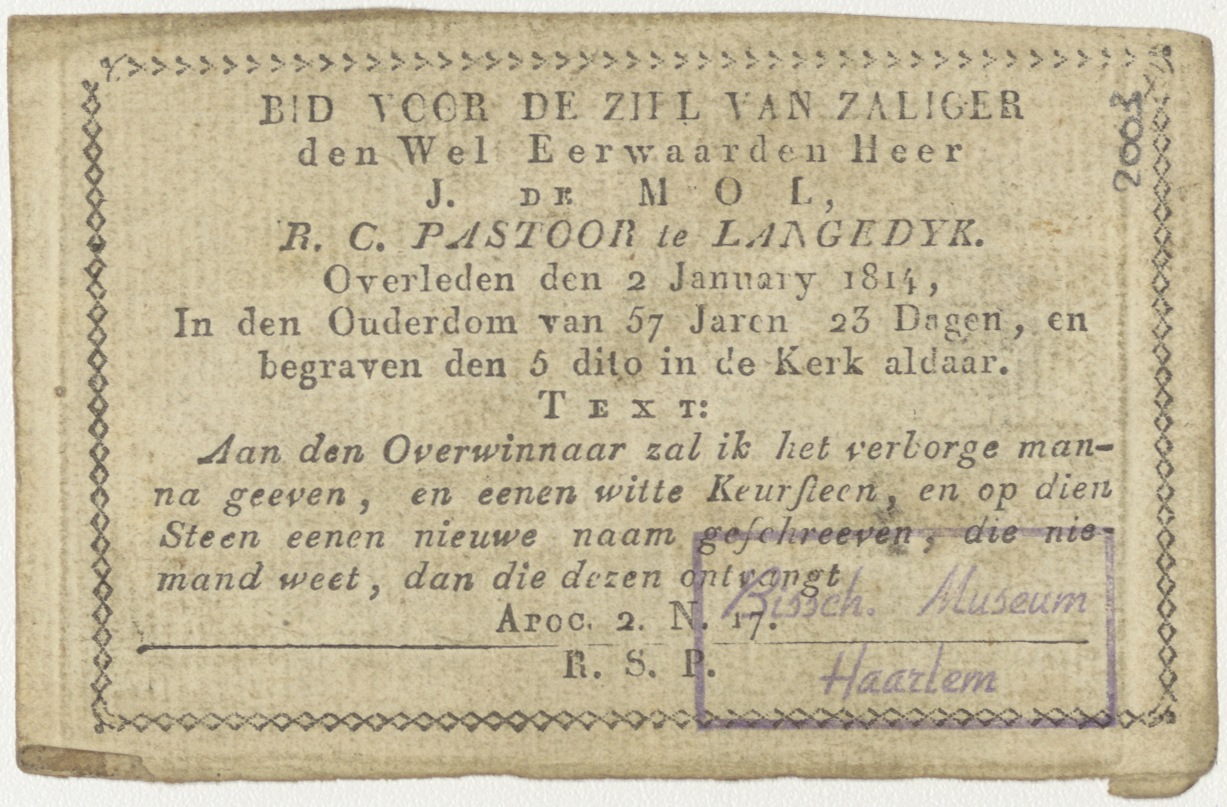 BID VOOR DE ZIEL VAN ZALIGER
den Wel Eerwaarden Heer
J. DE MOL,
R. C. PASTOOR te LANGEDYK.
Overleden den 2 January 1814,
In den Ouderdom van 57 Jaren 23 Dagen, en
begraven den 5 dito in de Kerk aldaar.
TEXT:
Aan den Overwinnaar zal ik het verborge man-
na geeven, en eenen witte Keurſteen, en op dien
Steen eenen nieuwe naam geſchreeven, die nie-
mand weet, dan die dezen ontvangt
Apoc. 2. N. 17.
R. S. P.
Bissch. Museum
Haarlem
2003